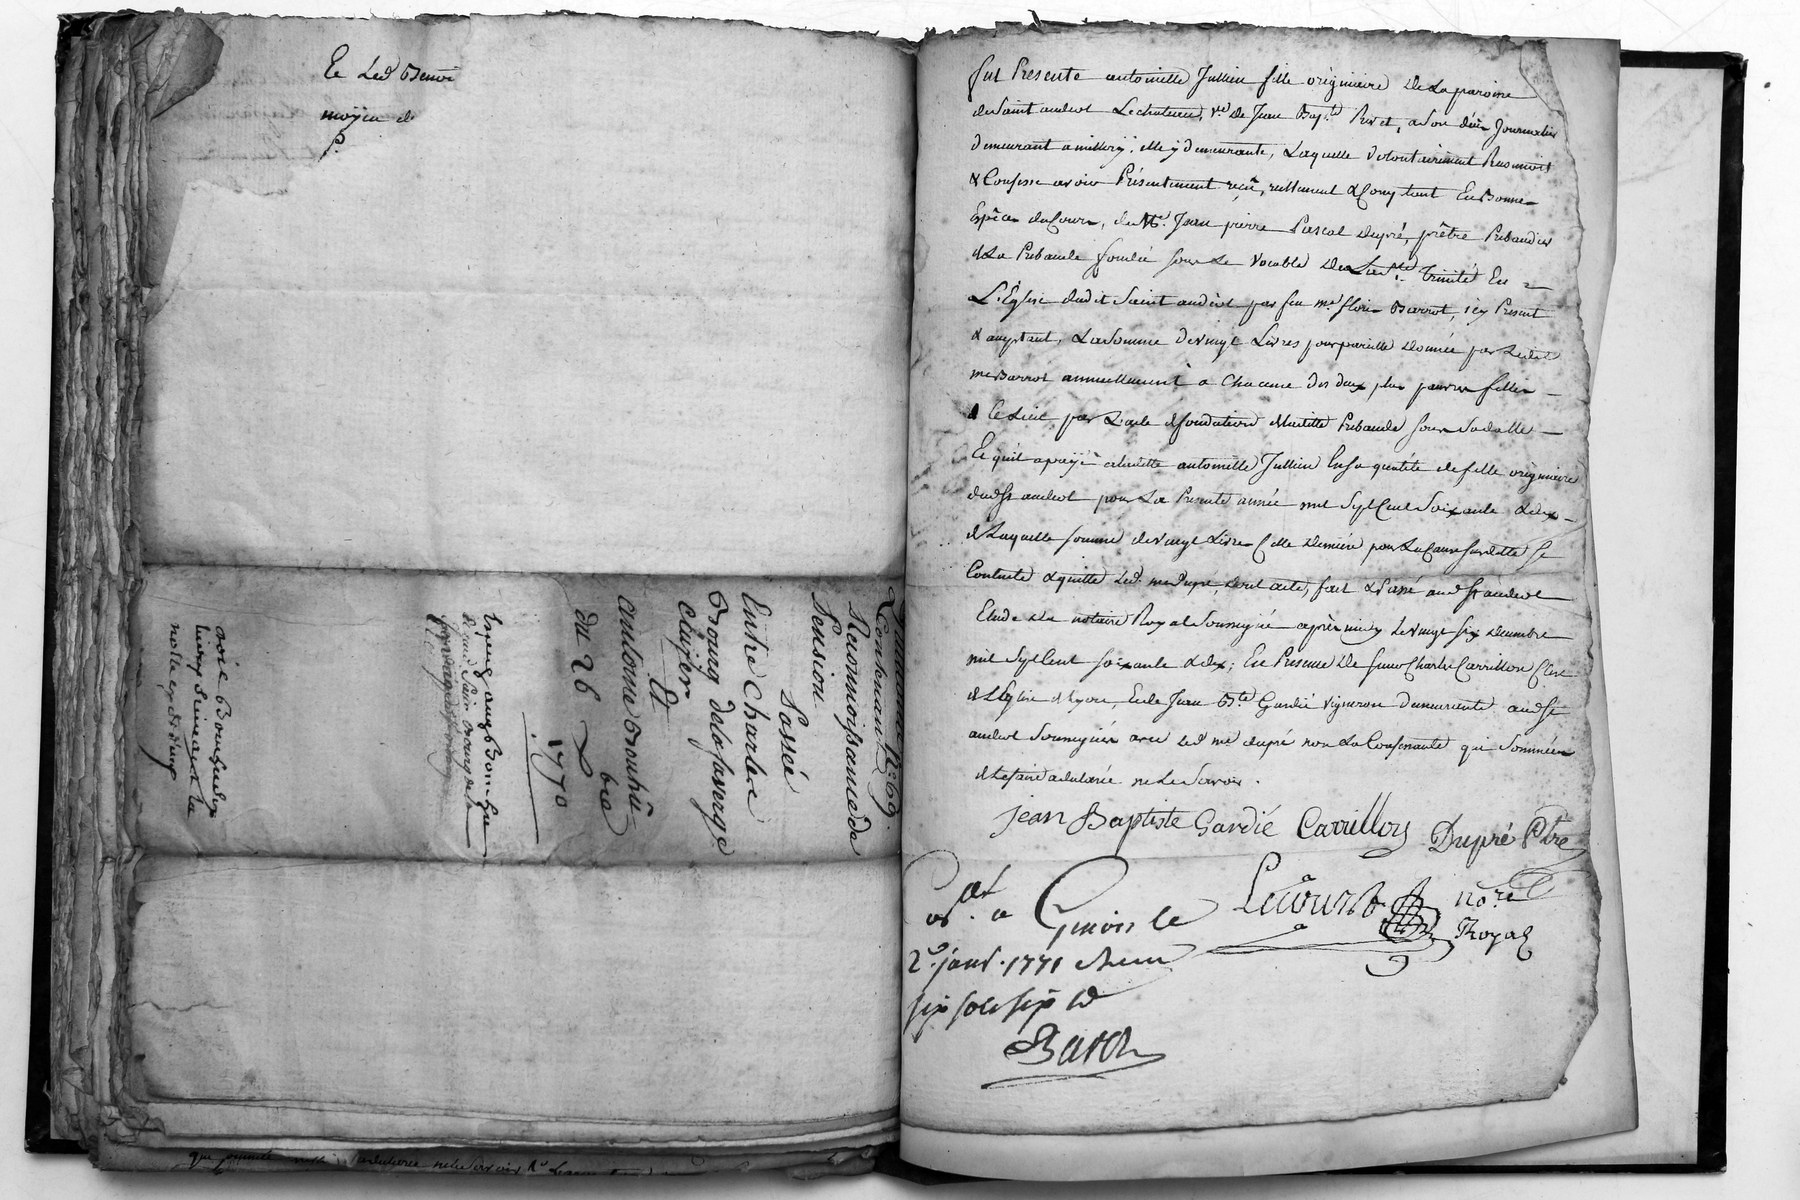 Ce Led Benoi
moÿen de
P.
Quittance N.° 69.
Contenant
Reconnoissance de
Pension
Passée
Entre Charle
Bourg de la faverge
clayer
Et
antoine bouhü
du 26 Xbre
1770
fut Presente antoinette Jullien fille originaire De La paroisse
de Saint andeol Le chateau, ve. De Jean Bap.te Rivet, a son décès Journalier
Demeurant a millery; elle y demeurante, Laquelle volontairement Reconnoit
& Confesse avoir Présentement reçu, reellement & Comptant En Bonne
Espèce du Cours, de Me. Jean pierre Pascal dupré, prêtre Prebandier
de La Prebande fondée sous Le vocable De La S.te Trinité En
L'Eglise dudit Saint andéol par feu me. fleury Barrot, icy Present
& acceptant, La Somme De vingt Livres pour pareille Donnée par Ledit
me Barrot annuellement a Chacune des deux plus pauvres filles
de ce Lieu par L'acte de fondation de Laditte Prebande sous sa datte
Ce qu'il a payé a laditte antoinette Jullien En sa qualité de fille originaire
dud St andeol pour La Presente année mil Sept Cent Soixante & dix
de Laquelle Somme de vingt Livres Cette Derniere pour La Cause susditte Se
Contente & quitte Led. me dupré, dont acte, fait & Passé aud St andeol
Etude du notaire Royal Soussigné après midy Le vingt six decembre
mil Sept Cent soixante & dix; En Presence De sieur Charles Carrillon Clerc
de L'Eglise de Lyon, Et de Jean B.te Gardié vigneron demeurants aud St
andeol Soussignés avec Led me dupré non La Confessante qui Sommée
de Le faire a declaré ne Le Savoir.
Jean Baptiste Gardié Carrillon Dupré Ptre
Lecourt no.re
Royal
Con.llé a Givors le
2.e janv. 1771 Reçu
six sols six d
Baron